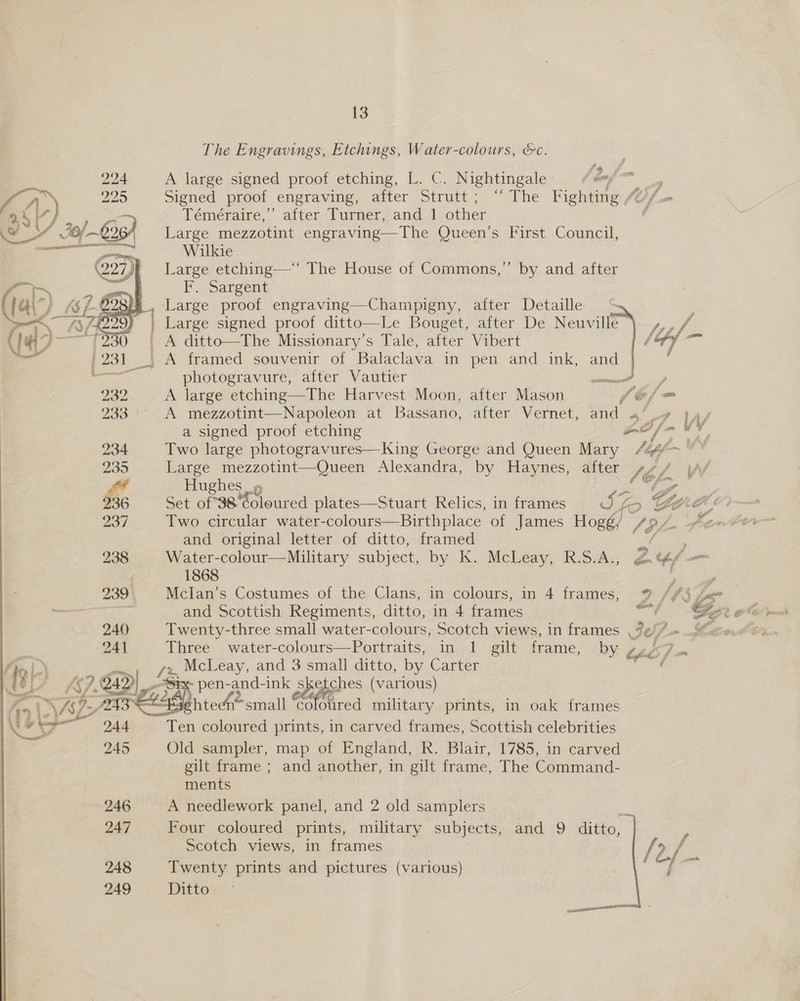 13
The Engravings, Etchings, Water-colours, &c.
224 A large signed proof etching, L. C. Nightingale
225 Signed proof engraving, after Strutt ; “ The Fighting
Téméraire,” after Turner, and 1 other
226 Large mezzotint engraving—The Queen’s First Council,
Wilkie
227 Large etching—“ The House of Commons,” by and after
F. Sargent
228 Large proof engraving—Champigny, after Detaille
229 Large signed proof ditto—Le Bouget, after De Neuville
230 A ditto—The Missionary’s Tale, after Vibert
231 A framed souvenir of Balaclava in pen and ink, and
photogravure, after Vautier
232 A large etching—The Harvest Moon, after Mason
233 A mezzotint—Napoleon at Bassano, after Vernet, and
a signed proof etching
234 Two large photogravures—King George and Queen Mary
235 Large mezzotint—Queen Alexandra, by Haynes, after
Hughes
236 Set of 38 coloured plates—Stuart Relics, in frames
237 Two circular water-colours—Birthplace of James Hogg,
and original letter of ditto, framed
238 Water-colour—Military subject, by K. McLeay, R.S.A.,
1868
239 McIan’s Costumes of the Clans, in colours, in 4 frames,
and Scottish Regiments, ditto, in 4 frames
240 Twenty-three small water-colours, Scotch views, in frames
241 Three water-colours—Portraits, in 1 gilt frame, by
McLeay, and 3 small ditto, by Carter
242 Six pen-and-ink sketches (various)
243 Eighteen small coloured military prints, in oak frames
244 Ten coloured prints, in carved frames, Scottish celebrities
245 Old sampler, map of England, R. Blair, 1785, in carved
gilt frame ; and another, in gilt frame, The Command-
ments
246 A needlework panel, and 2 old samplers
247 Four coloured prints, military subjects, and 9 ditto,
Scotch views, in frames
248 Twenty prints and pictures (various)
249 Ditto